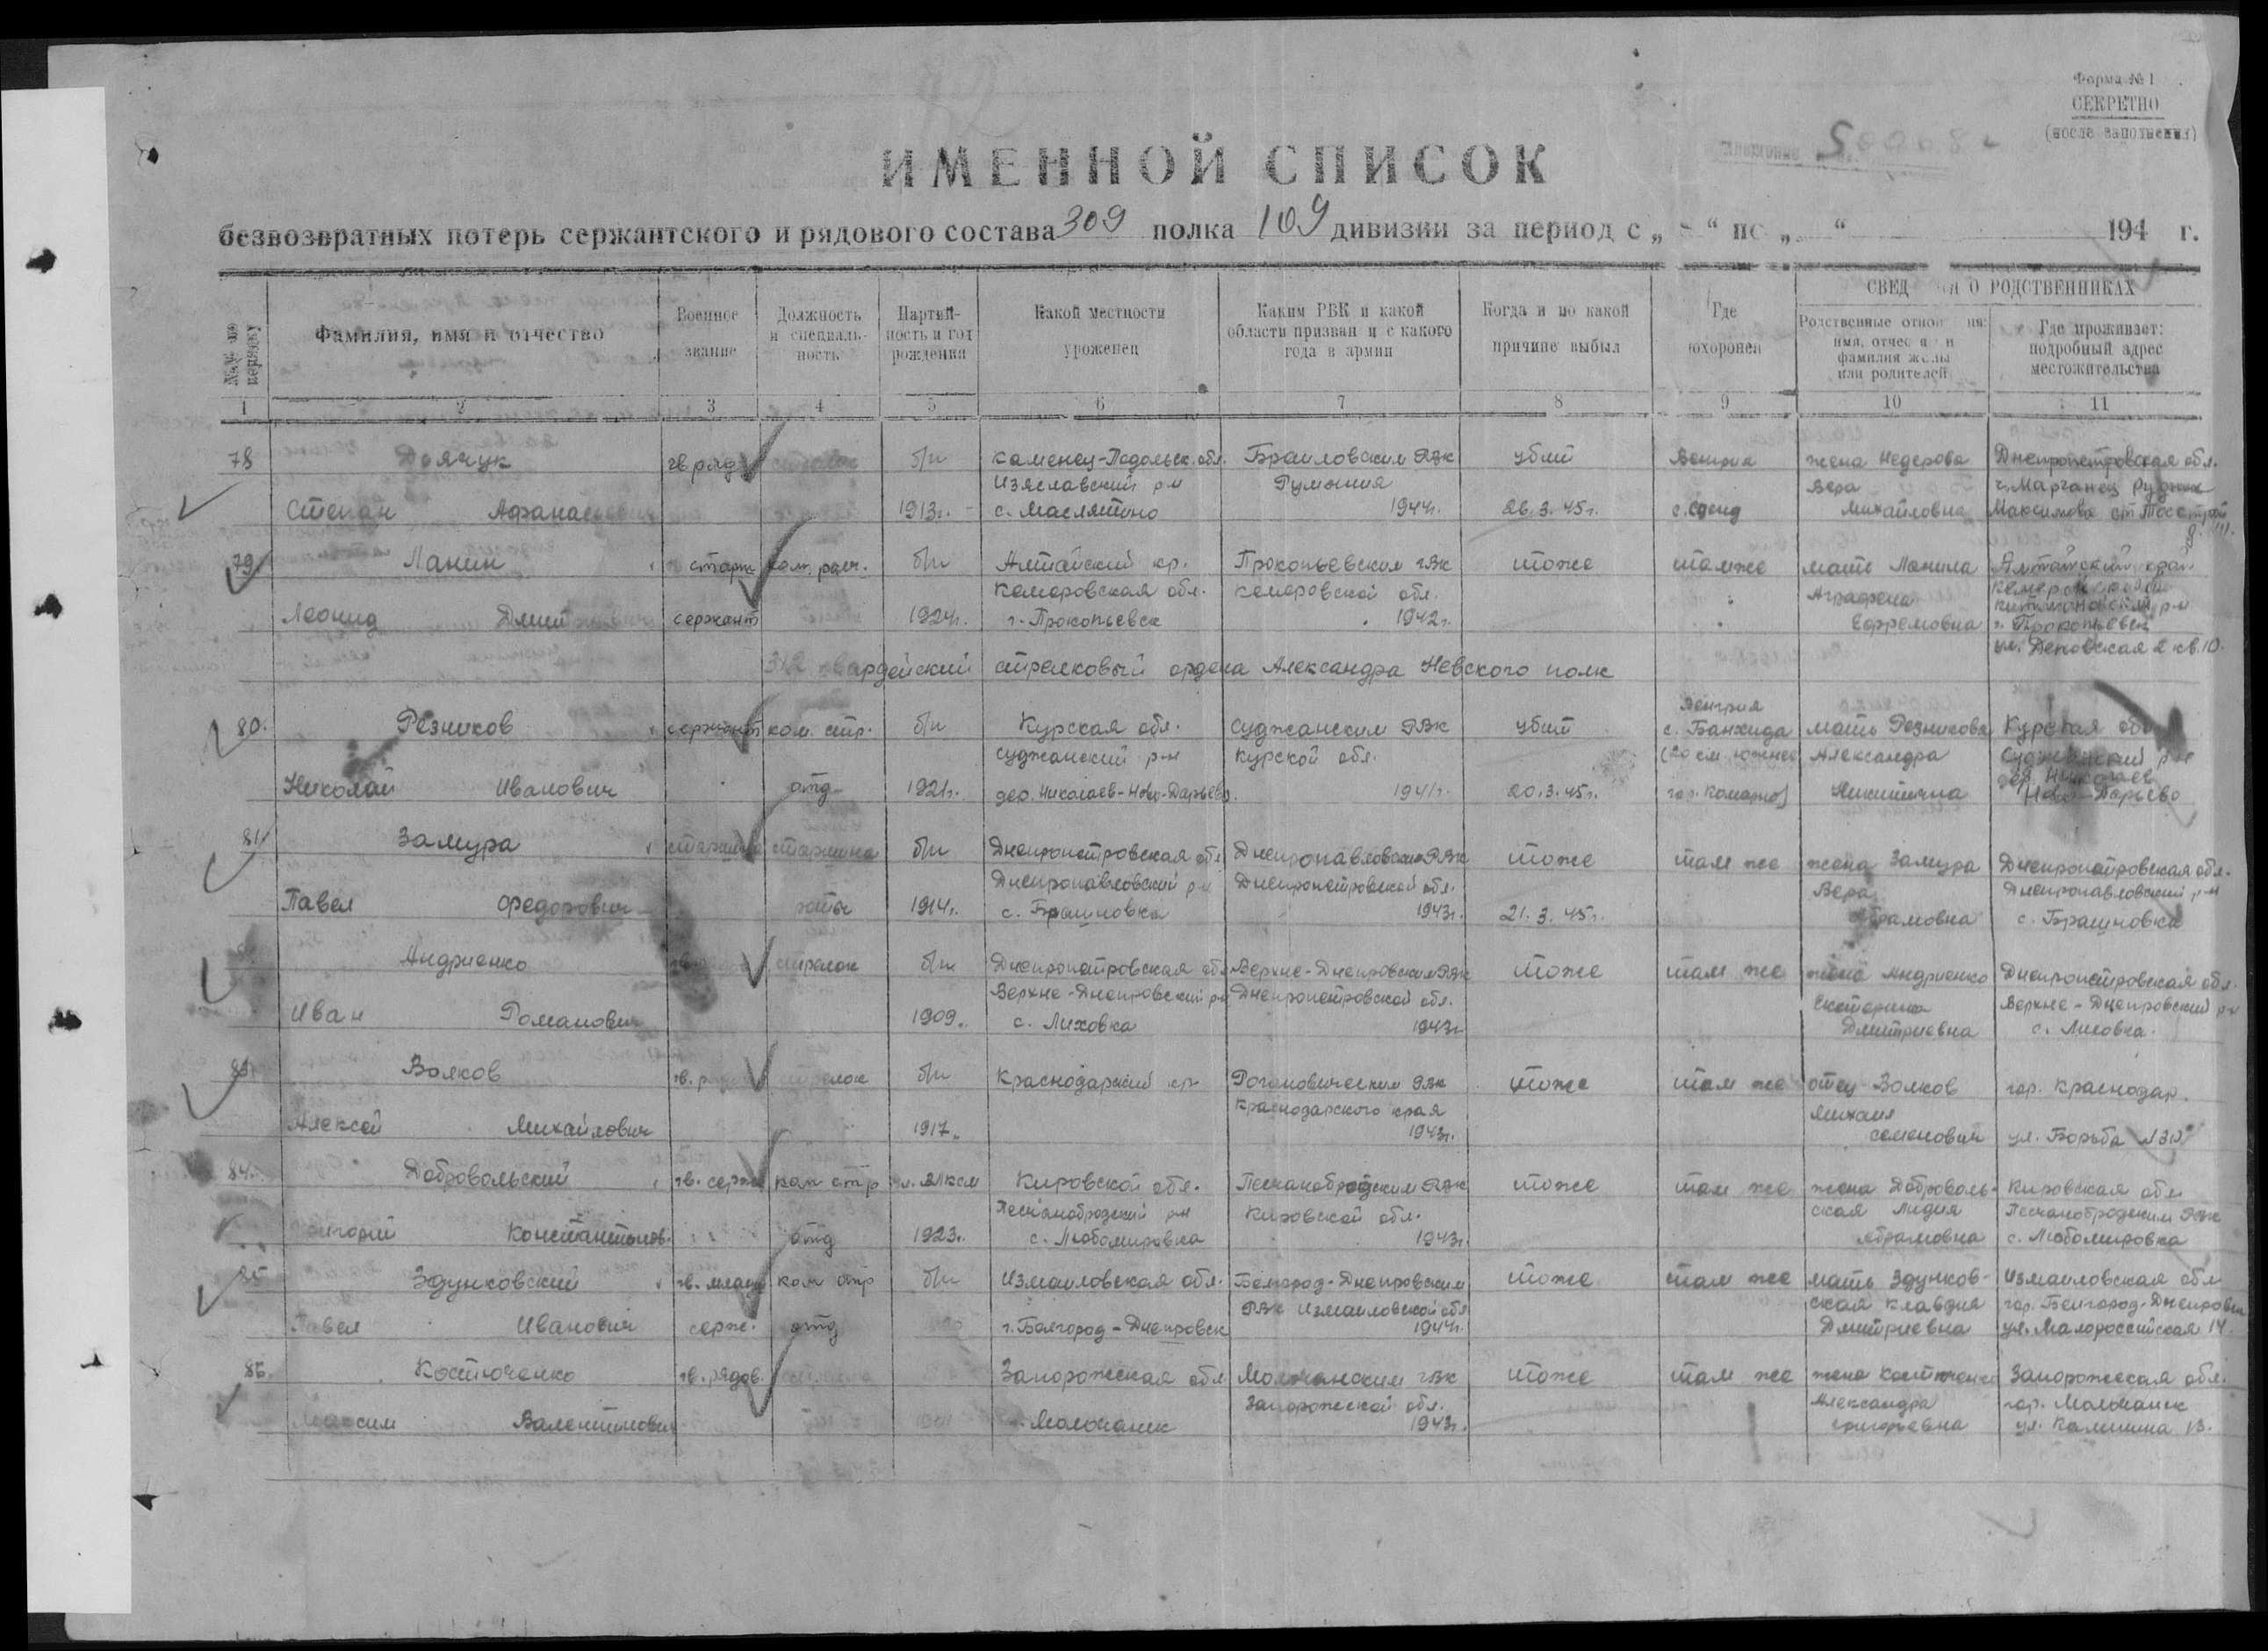 Форма № 1
СЕКРЕТНО
(после заполнения)
ИМЕННОЙ СПИСОК
безвозвратных потерь сержантского и рядового состава 309 полка 109 дивизии за период с „ “ по „ “ 194 г.
№№ по порядку
Фамилия, имя и отчество
Военное звание
Должность и специальность
Партийность и год рождения
Какой местности уроженец
Каким РВК и какой области призван и с какого года в армии
Когда и по какой причине выбыл
Где похоронен
СВЕД О РОДСТВЕННИКАХ
Родственные отнош ия:
имя, отчес и
фамилия жены
или родителей
Где проживает:
подробный адрес
местожительства
1 2 3 4 5 6 7 8 9 10 11
78 Дячук гв ряд б/п Каменец-Подольск. обл. Браиловским РВК убит Венгрия жена Недерова Днепропетровская обл.
Изяславский р-н Румыния Вера г. Марганец Рудник
Степан 1913г. с. Маслятино 1944г. 26.3.45г. Михайловна Максимова
79 Ланин старш ком. расч. б/п Алтайский кр. Прокопьевским ГВК тоже там же мать Ланина Алтайский край
Кемеровская обл. Кемеровской обл. Аграфена
Леонид сержант 1924г. г. Прокопьевск 1942г. Ефремовна г. Прокопьевск
ул. Деповская 2 кв. 10.
312 гвардейский стрелковый ордена Александра Невского полк
80. Резников сержант ком. стр. б/п Курская обл. Суджанским РВК убит Венгрия с. Банхида мать Резникова Курская обл
Суджанский р-н Курской обл. (20 км южнее Александра Суджанский р-н
Николай Иванович отд 1921г. дер. Николаев-Ново-Дарьево. 1941г. 20.3.45г. гор. Комарно) Никитична дер. Николаев Ново-Дарьево
81 Замура старшина старшина б/п Днепропетровская обл Днепропавловским РВК тоже там же жена Замура Днепропетровская обл.
Днепропавловский р-н Днепропетровской обл. Вера Днепропавловский р-н
Павел Федорович роты 1914г. 1943г. 21.3.45г. Абрамовна
Андриенко стрелок б/п Днепропетровская обл Верхне-Днепровским РВК тоже там же жена Андриенко Днепропетровская обл.
Верхне-Днепровский р-н Днепропетровской обл. Екатерина Верхне-Днепровский р-н
Иван Романович 1909. с. Лиховка 1943г. Дмитриевна с. Лиховка.
83. Волков гв. стрелок б/п Краснодарский кр. РВК тоже там же отец Волков гор. Краснодар.
Краснодарского края Михаил
Алексей Михайлович 1917 1943г. Семенович ул. Борьба
84. Добровольский гв. серж ком стр ч. ВЛКСМ Кировской обл. Песчанобродским РВК тоже там же жена Доброволь- Кировская обл
Песчанобродский р-н Кировской обл. ская Лидия Песчанобродским РВК
Григорий Константинов. отд 1923г. с. Любомировка 1943г. Абрамовна с. Любомировка
85 Здунковский гв. млад ком отр б/п Измаиловская обл. Белгород-Днепровским тоже там же мать Здунков- Измаиловская обл
РВК Измаиловской обл ская Клавдия гор. Белгород-Днепровск
Павел Иванович серж. отд г. Белгород-Днепровск 1944г. Дмитриевна ул. Малороссийская 14.
86. Костюченко гв. рядов. Запорожская обл Молочанским РВК тоже там же жена Костюченко Запорожская обл.
Запорожской обл. Александра гор. Молочанск
Максим Валентинович Молочанск 1943г. Григорьевна ул. Калинина 13.